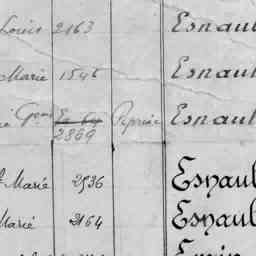 Louis 2163 Esnaul
Marie 1546 Esnaul
Reprise Esnaul
2869
Marie 2536 Esnaul
Marie 2164 Esnaul